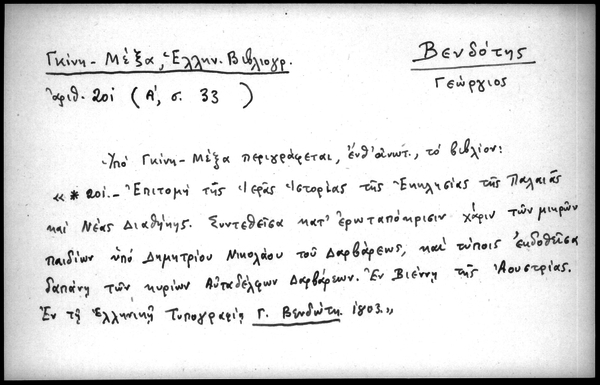 Γκίνη - Μέξα, Ἑλλην. Βιβλιογρ.
Βενδότης
Γεώργιος
ἀριθ. 201 (Α', σ. 33 )
Ὑπὸ Γκίνη - Μέξα περιγράφεται, ἔνθ' ἀνωτ., τὸ βιβλίον:
« * 201. - Ἐπιτομὴ τῆς Ἱερᾶς Ἱστορίας τῆς Ἐκκλησίας τῆς Παλαιᾶς
καὶ Νέας Διαθήκης. Συντεθεῖσα κατ' ἐρωταπόκρισιν χάριν τῶν μικρῶν
παιδίων ὑπὸ Δημητρίου Νικολάου τοῦ Δαρβάρεως, καὶ τύποις ἐκδοθεῖσα
δαπάνῃ τῶν κυρίων Αὐταδέλφων Δαρβάρεων. Ἐν Βιέννῃ τῆς Ἀουστρίας.
Ἐν τῇ Ἑλληνικῇ Τυπογραφίᾳ Γ. Βενδώτη. 1803. »